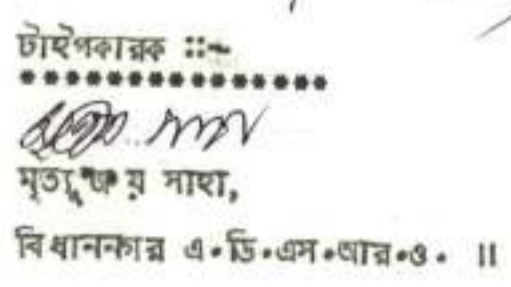 টাইপকারক ::-
***************
মৃত্যুঞ্জয় সাহা,
বিধাননগর এ.ডি.এস.আর.ও. ॥